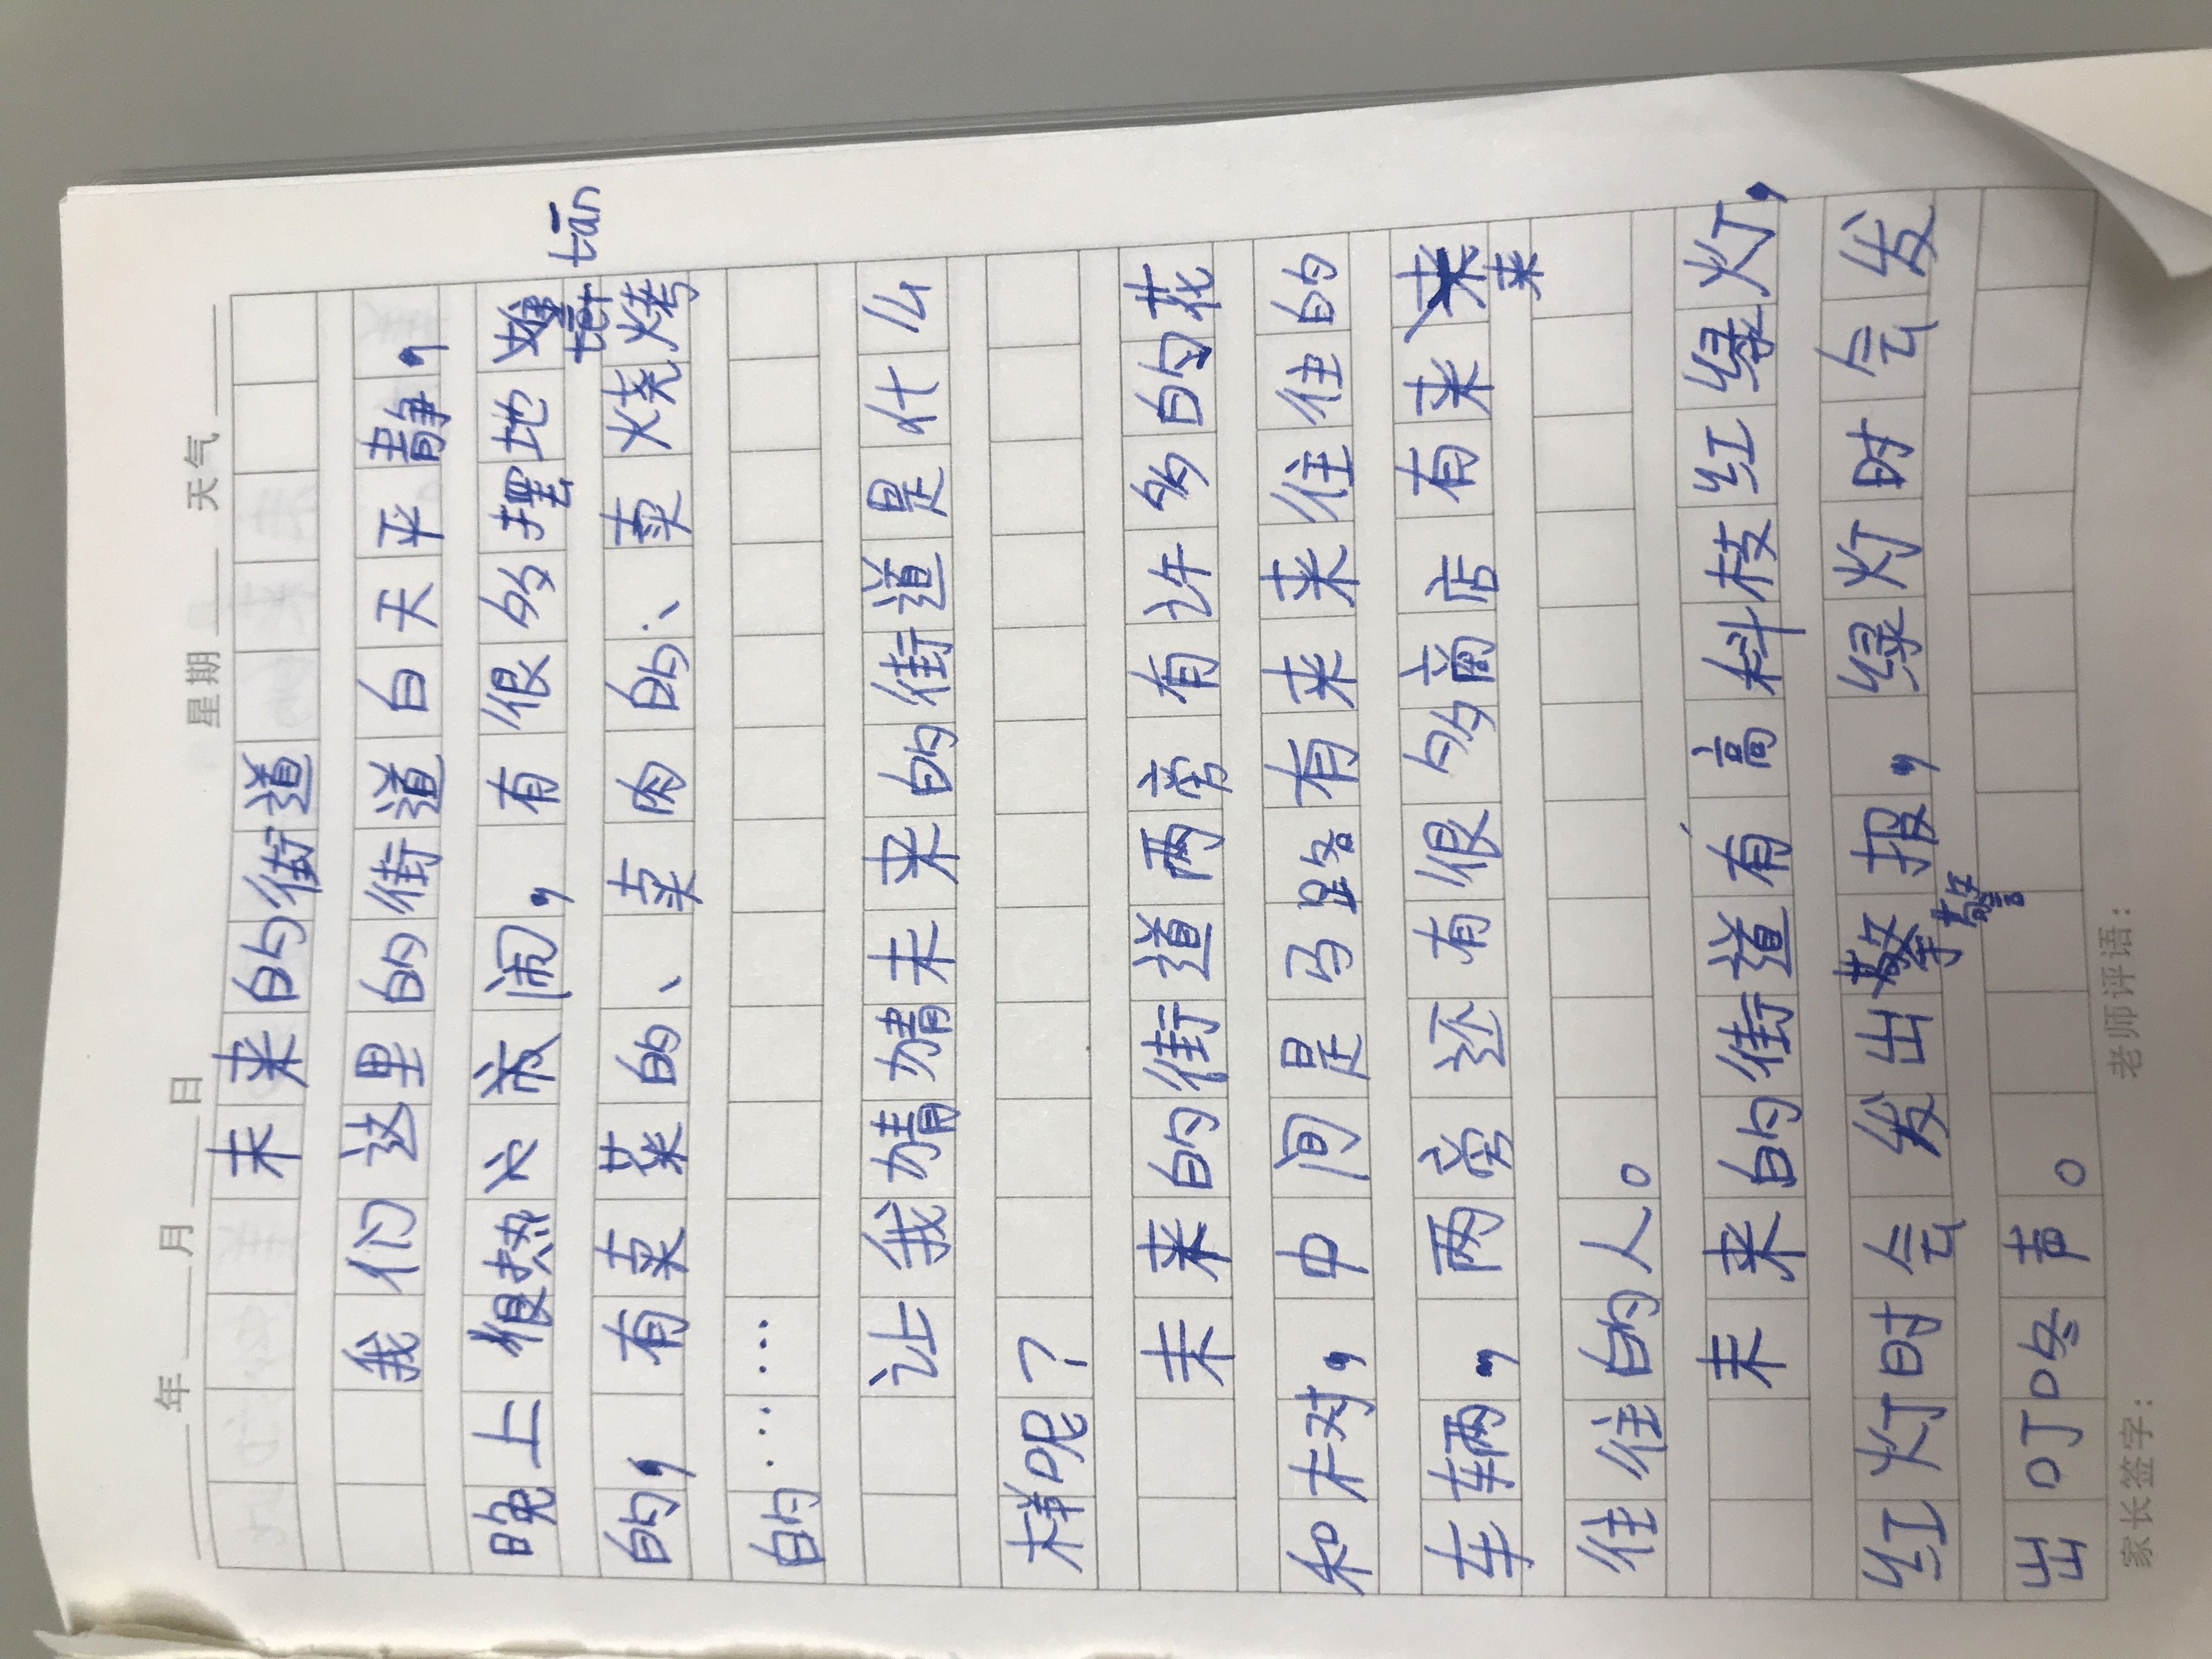 年 月 日 星期 天气
未来的街道
我们这里的街道白天平静，
晚上很热心夜闹，有很多摆地 tān
的，有卖菜的、卖肉的、卖烧烤
的……
让我猜猜未来的街道是什么
样呢？
未来的街道两旁有许多的花
和木对，中间是马路有来来往往的
车辆，两旁还有很多商店有来来
往往的人。
未来的街道有高科枝红绿灯，
红灯时会发出警报，绿灯时会发
出叮咚声。
家长签字： 老师评语：